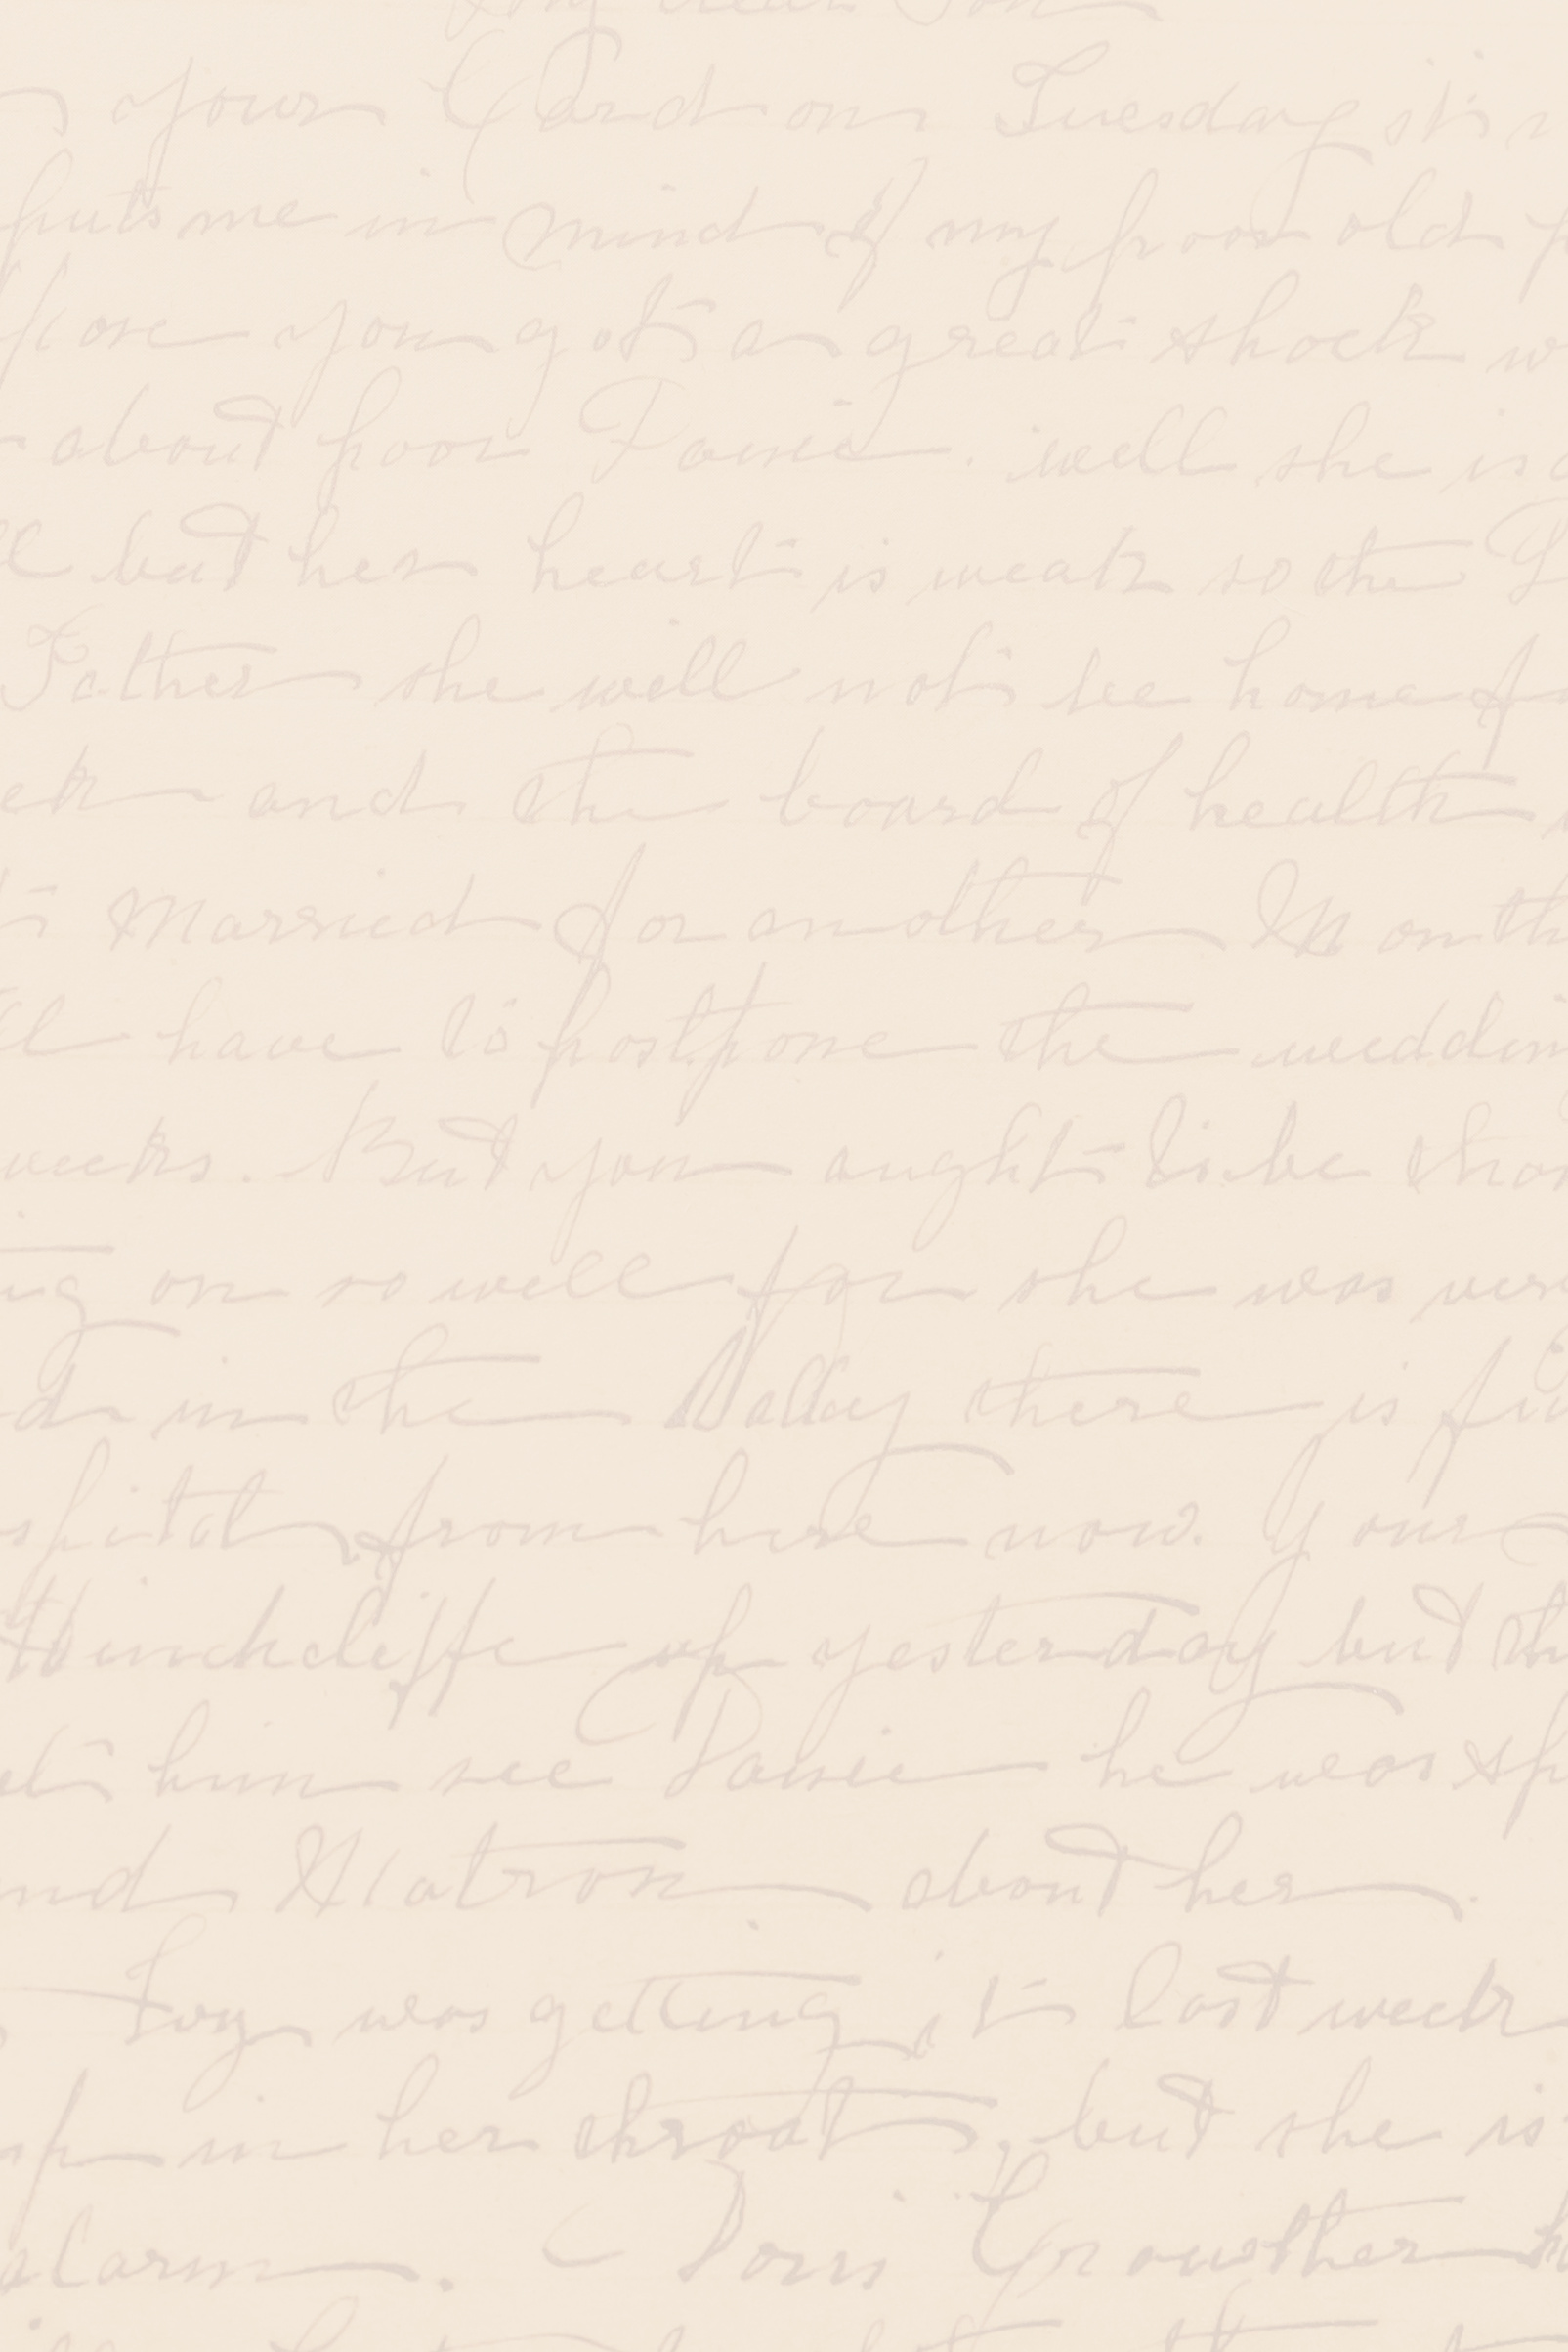 My dear Son
your Card on Tuesday it's
puts me in mind of my poor old
pose you got a great shock
about poor Janie. well she is
but her heart is weak so the
Father she will not be home
ek and the board of health
Married for another Month
have to postpone the weddin
weeks. But you aught to be
ng on so well for she was ver
d in the Valley there is
spital from here now. Your
Hinchcliffe up yesterday but th
et him see Janie he was sp
nd Matron about her.
Ivy was getting it last week
in her throat, but she is
alarm. Doris Crowther